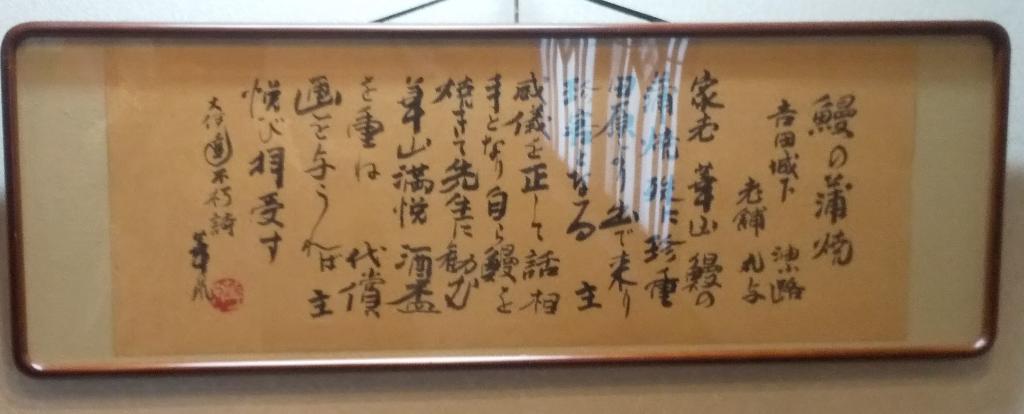 鰻の蒲焼
吉田城下
老舗 丸よ
家老 華山 鰻の
蒲焼 殊に珍重
田原より出で来り
珍客となる 主
威儀を正して話相
手となり自ら鰻を
焼きて先生に勧む
華山満悦 酒盃
を重ね 代償
画を与うれば 主
悦び拝受す
大伴 不朽詩